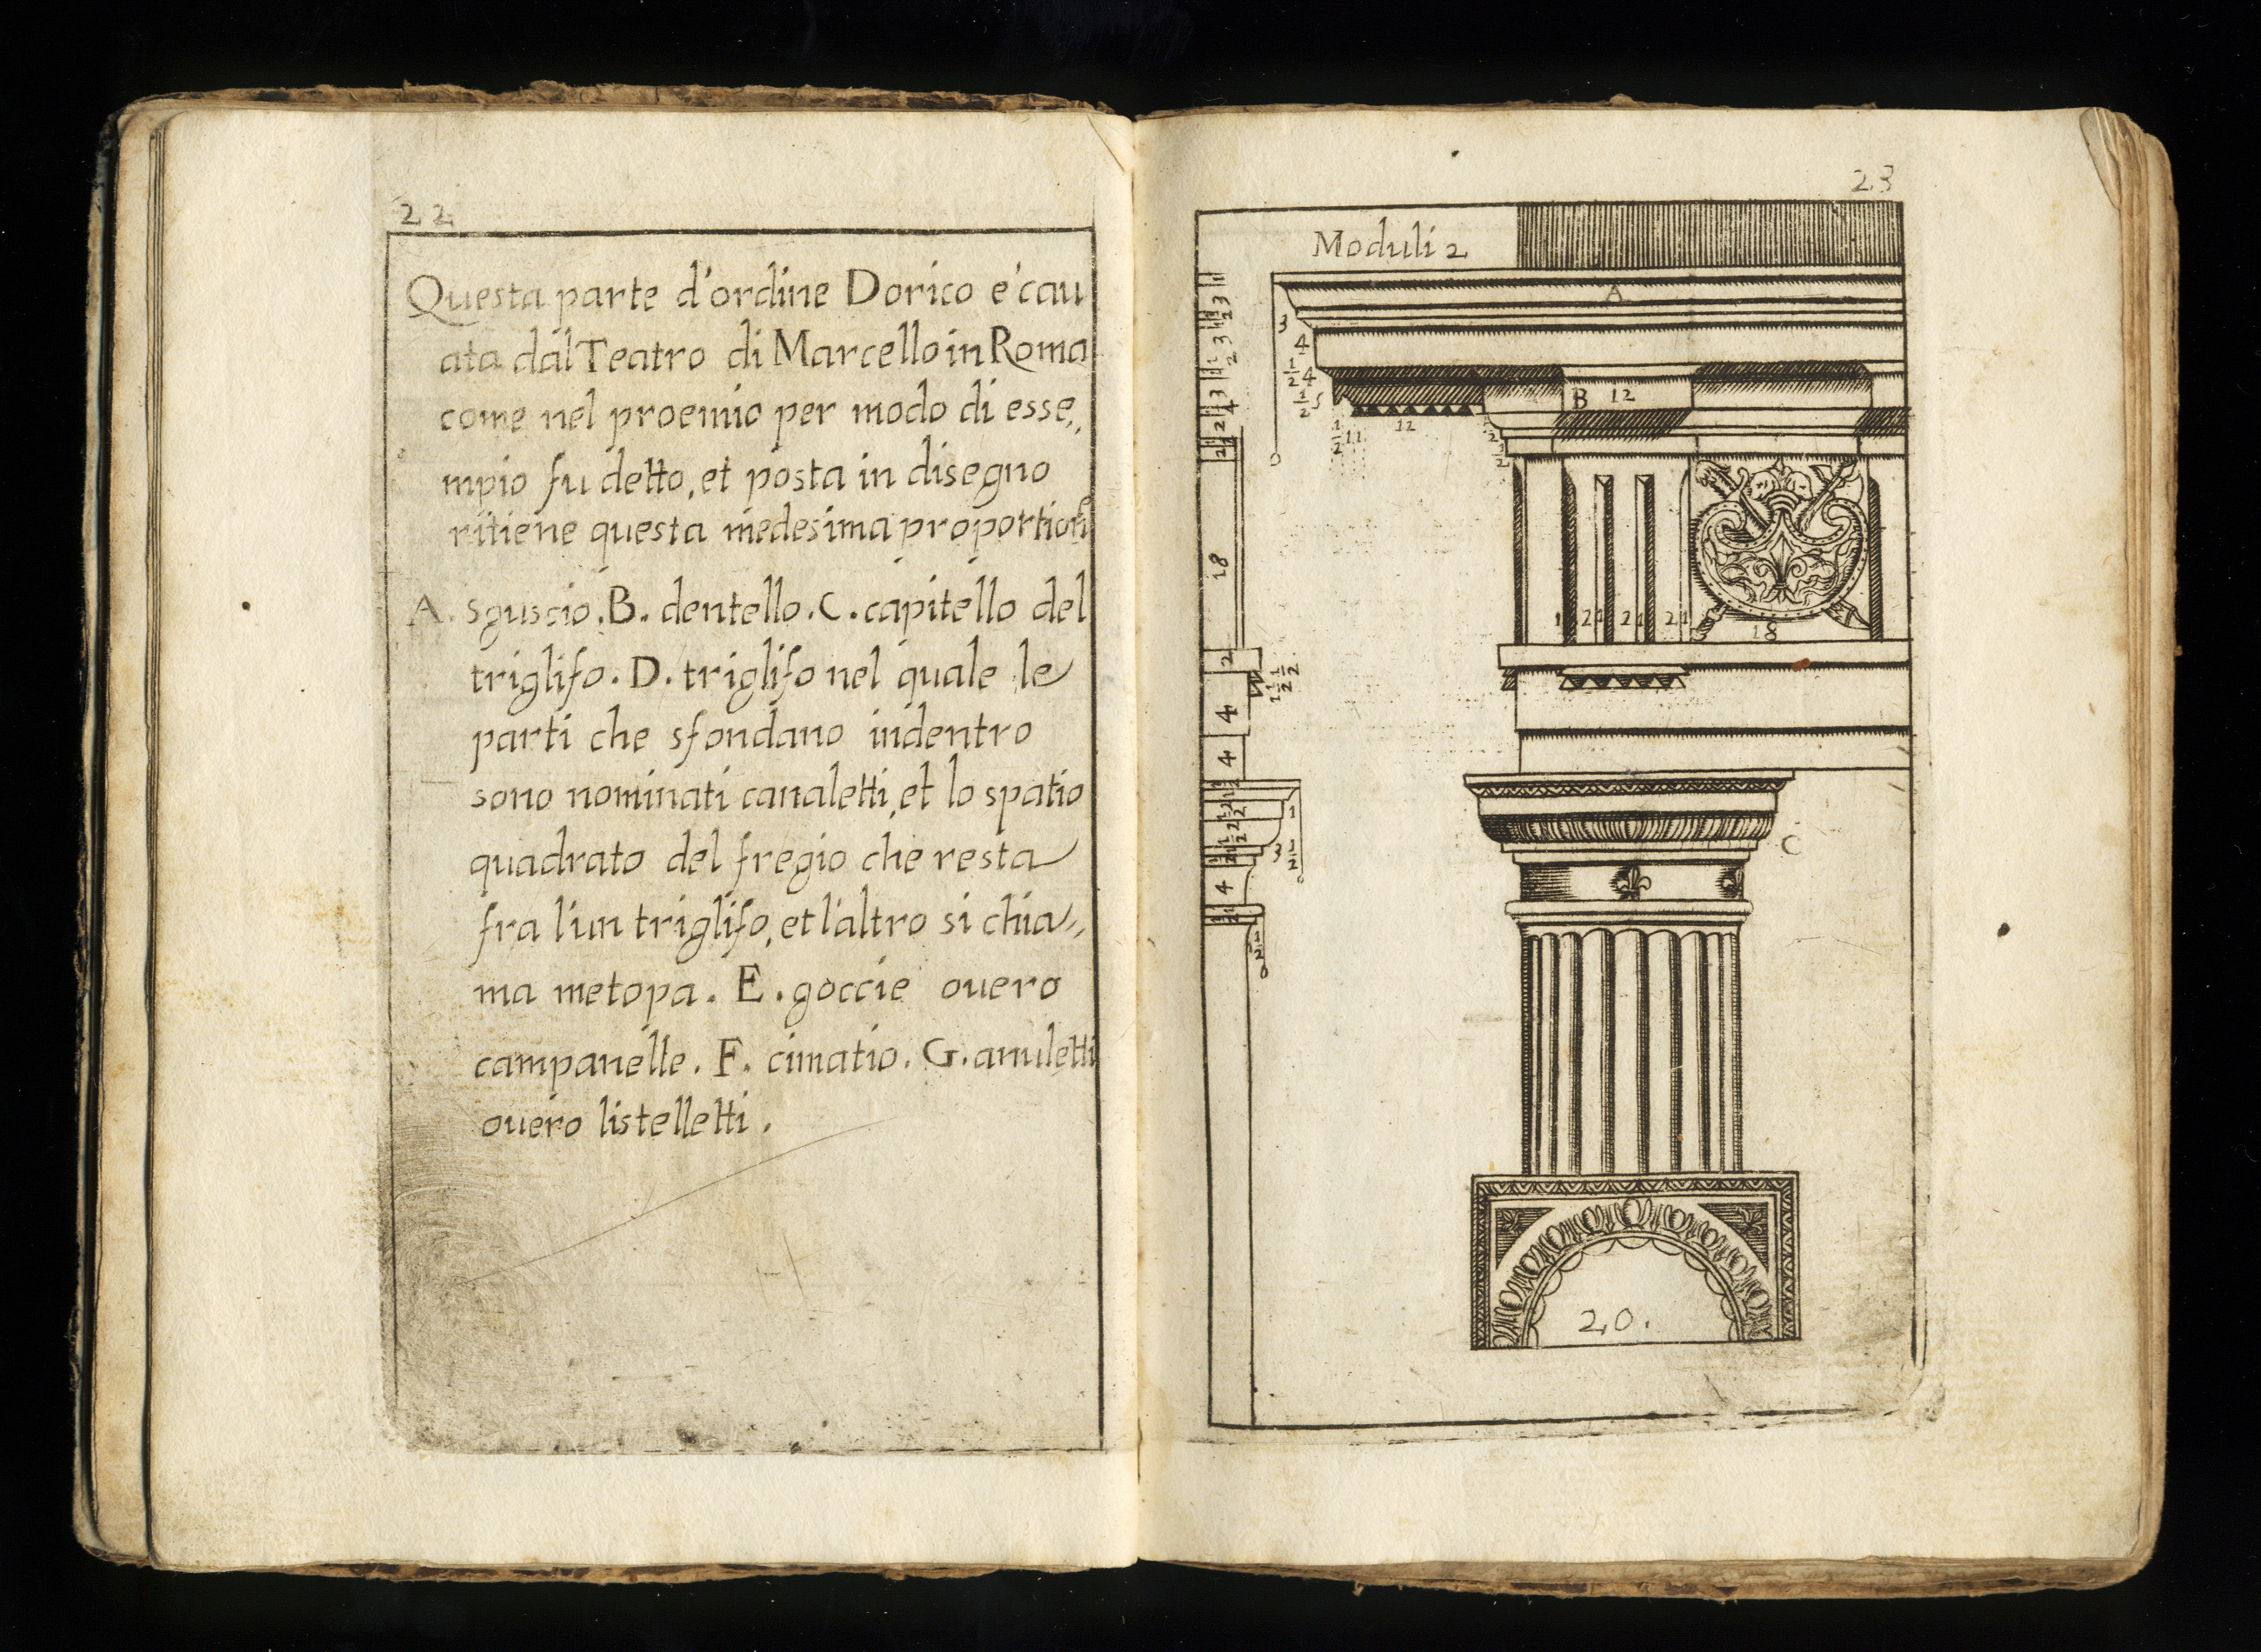 22
Questa parte d'ordine Dorico e' cau
ata dal Teatro di Marcello in Roma
come nel proemio per modo di esse,,
mpio fu detto, et posta in disegno
ritiene questa medesima proportioñ
A. sguscio. B. dentello. C. capitello del
triglifo. D. triglifo nel quale le
parti che sfondano indentro
sono nominati canaletti, et lo spatio
quadrato del fregio che resta
fra l'un triglifo, et l'altro si chia,,
ma metopa. E. goccie ouero
campanelle. F. cimatio. G. anuletti
ouero listelletti.
23
Moduli 2
A
3
4
1/2 4
1/2 5
B 12
12
1/2 11
18
1 2 1 2 1 2 1
18
2
4
4
C
1
3 1/2
4
20.